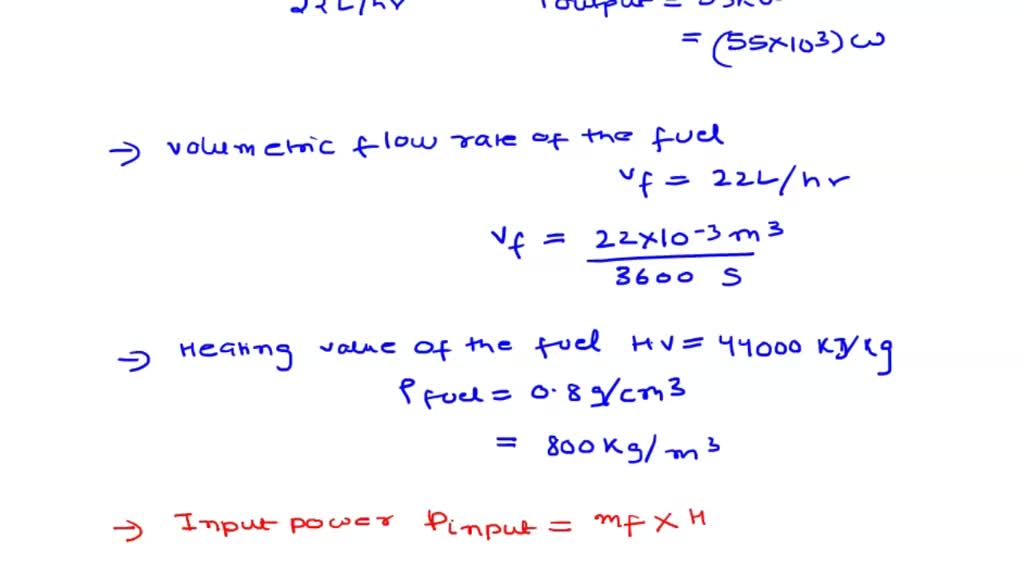 22L/hr
= (55×10³) ω
→ volumetric flow rate of the fuel
vf = 22L/hr
Vf = 22×10-3 m³
3600 S
→ Heating value of the fuel HV = 44000 KJ/Kg
ρ fuel = 0.8 g/cm3
= 800 Kg/m³
→ Input power Pinput = mf × H